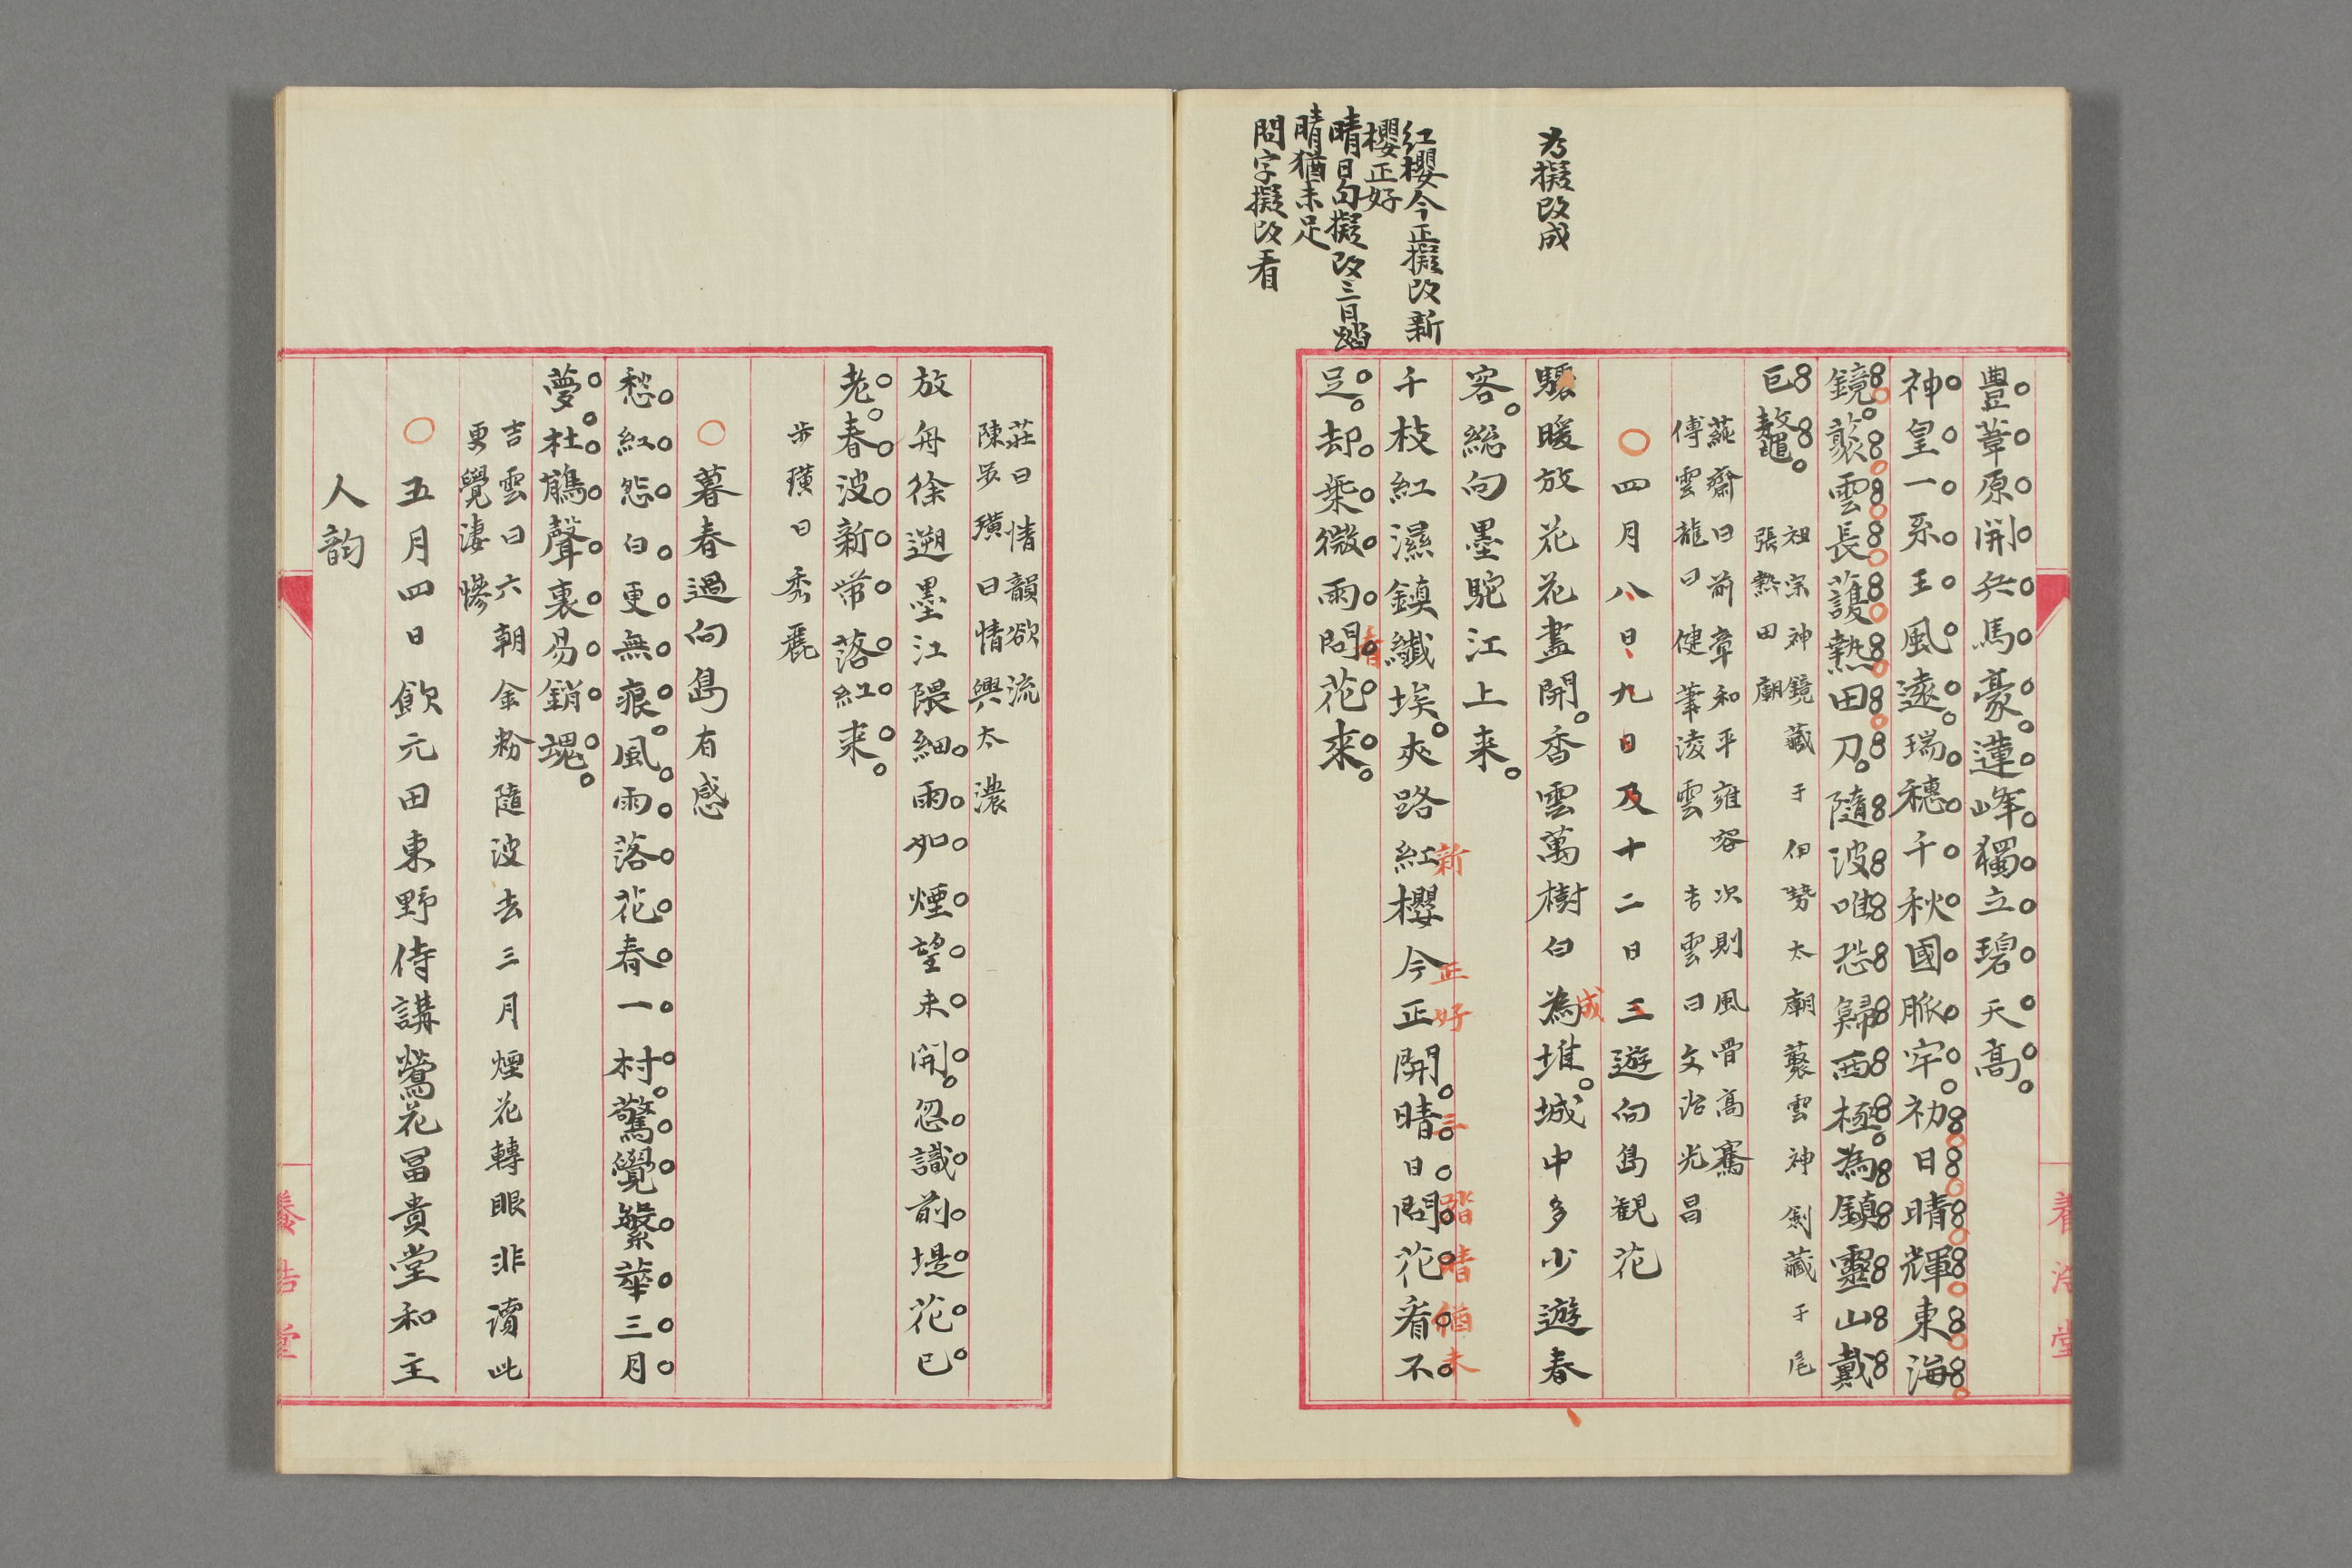 為擬改成
紅櫻今正擬改新
櫻正好
晴日句擬改三日踏
晴猶未足
問字擬改看
豊葦原開兵馬豪蓮峰獨立碧天高
神皇一系王風遠瑞穗千秋國脈牢初日晴輝東海
鏡藂雲長護熱田刀隨波唯恐歸西極為鎮靈山戴
巨鼇
祖宗神鏡藏于伊勢太廟藂雲神劍藏于尾
張熱田廟
蓺齋曰前章和平雍容次則風骨高騫
傅雲龍曰健筆淩雲 吉雲曰文治光昌
○四月八日九日及十二日三遊向島観花
驟暖放花花盡開香雲萬樹白為堆城中多少遊春
成
客総向墨駝江上来
千枝紅濕鎮纖埃夾路紅櫻今正開晴日問花看不
新 正好 三 踏晴猶未
足却乗微雨問花来
看
養浩堂
莊曰情韻欲流
陳哭璜曰情興太濃
放舟徐遡墨江隈細雨如煙望未開忽識前堤花已
老春波新帶落紅来
步璜曰秀麗
○暮春過向島有感
愁紅怨白更無痕風雨落花春一村驚覺繁華三月
夢杜鵑聲裏易銷魂
吉雲曰六朝金粉隨波去三月煙花轉眼非讀此
更覺凄慘
○五月四日飲元田東野侍講鶯花冨貴堂和主
人韵
養浩堂